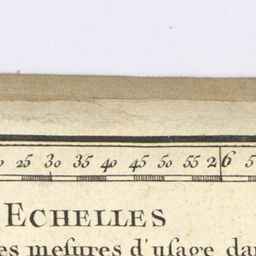 25 30 35 40 45 50 55 2 6
ECHELLES
es meſures d'uſage da